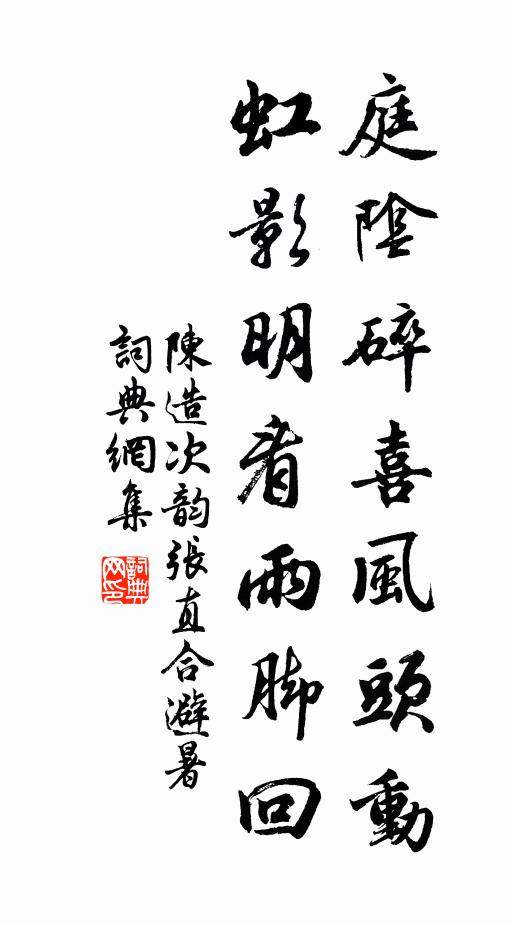 庭陰碎喜風頭動
虹影明看雨脚回
陳造次韵張直合避暑
詞典網集
詞典网印